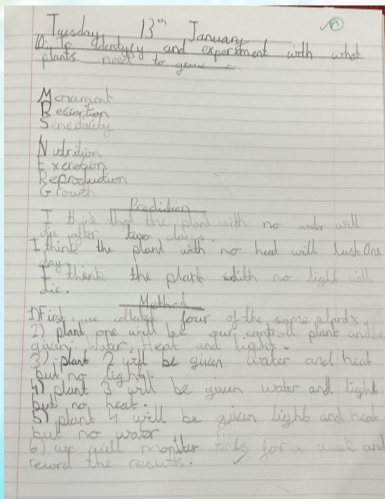 Tuesday 13th January
To identify and experiment with what
plants need to grow
Movement
Resiration
Sensitivity
Nutrition
Excretion
Reproduction
Growth
Prediction
I think that the plant with no water will
die after two days.
I think the plant with no heat will last One
day.
I think the plant with no light will
die.
Method
1) First, we collected four of the same plants.
2) plant one will be our controll plant and be
giving water, Heat and light.
3) plant 2 will be given water and heat
but no light.
4) plant 3 will be given water and light
but no heat.
5) plant 4 will be given light and heat
but no water
6) we will monitor this for a week and
record the results.